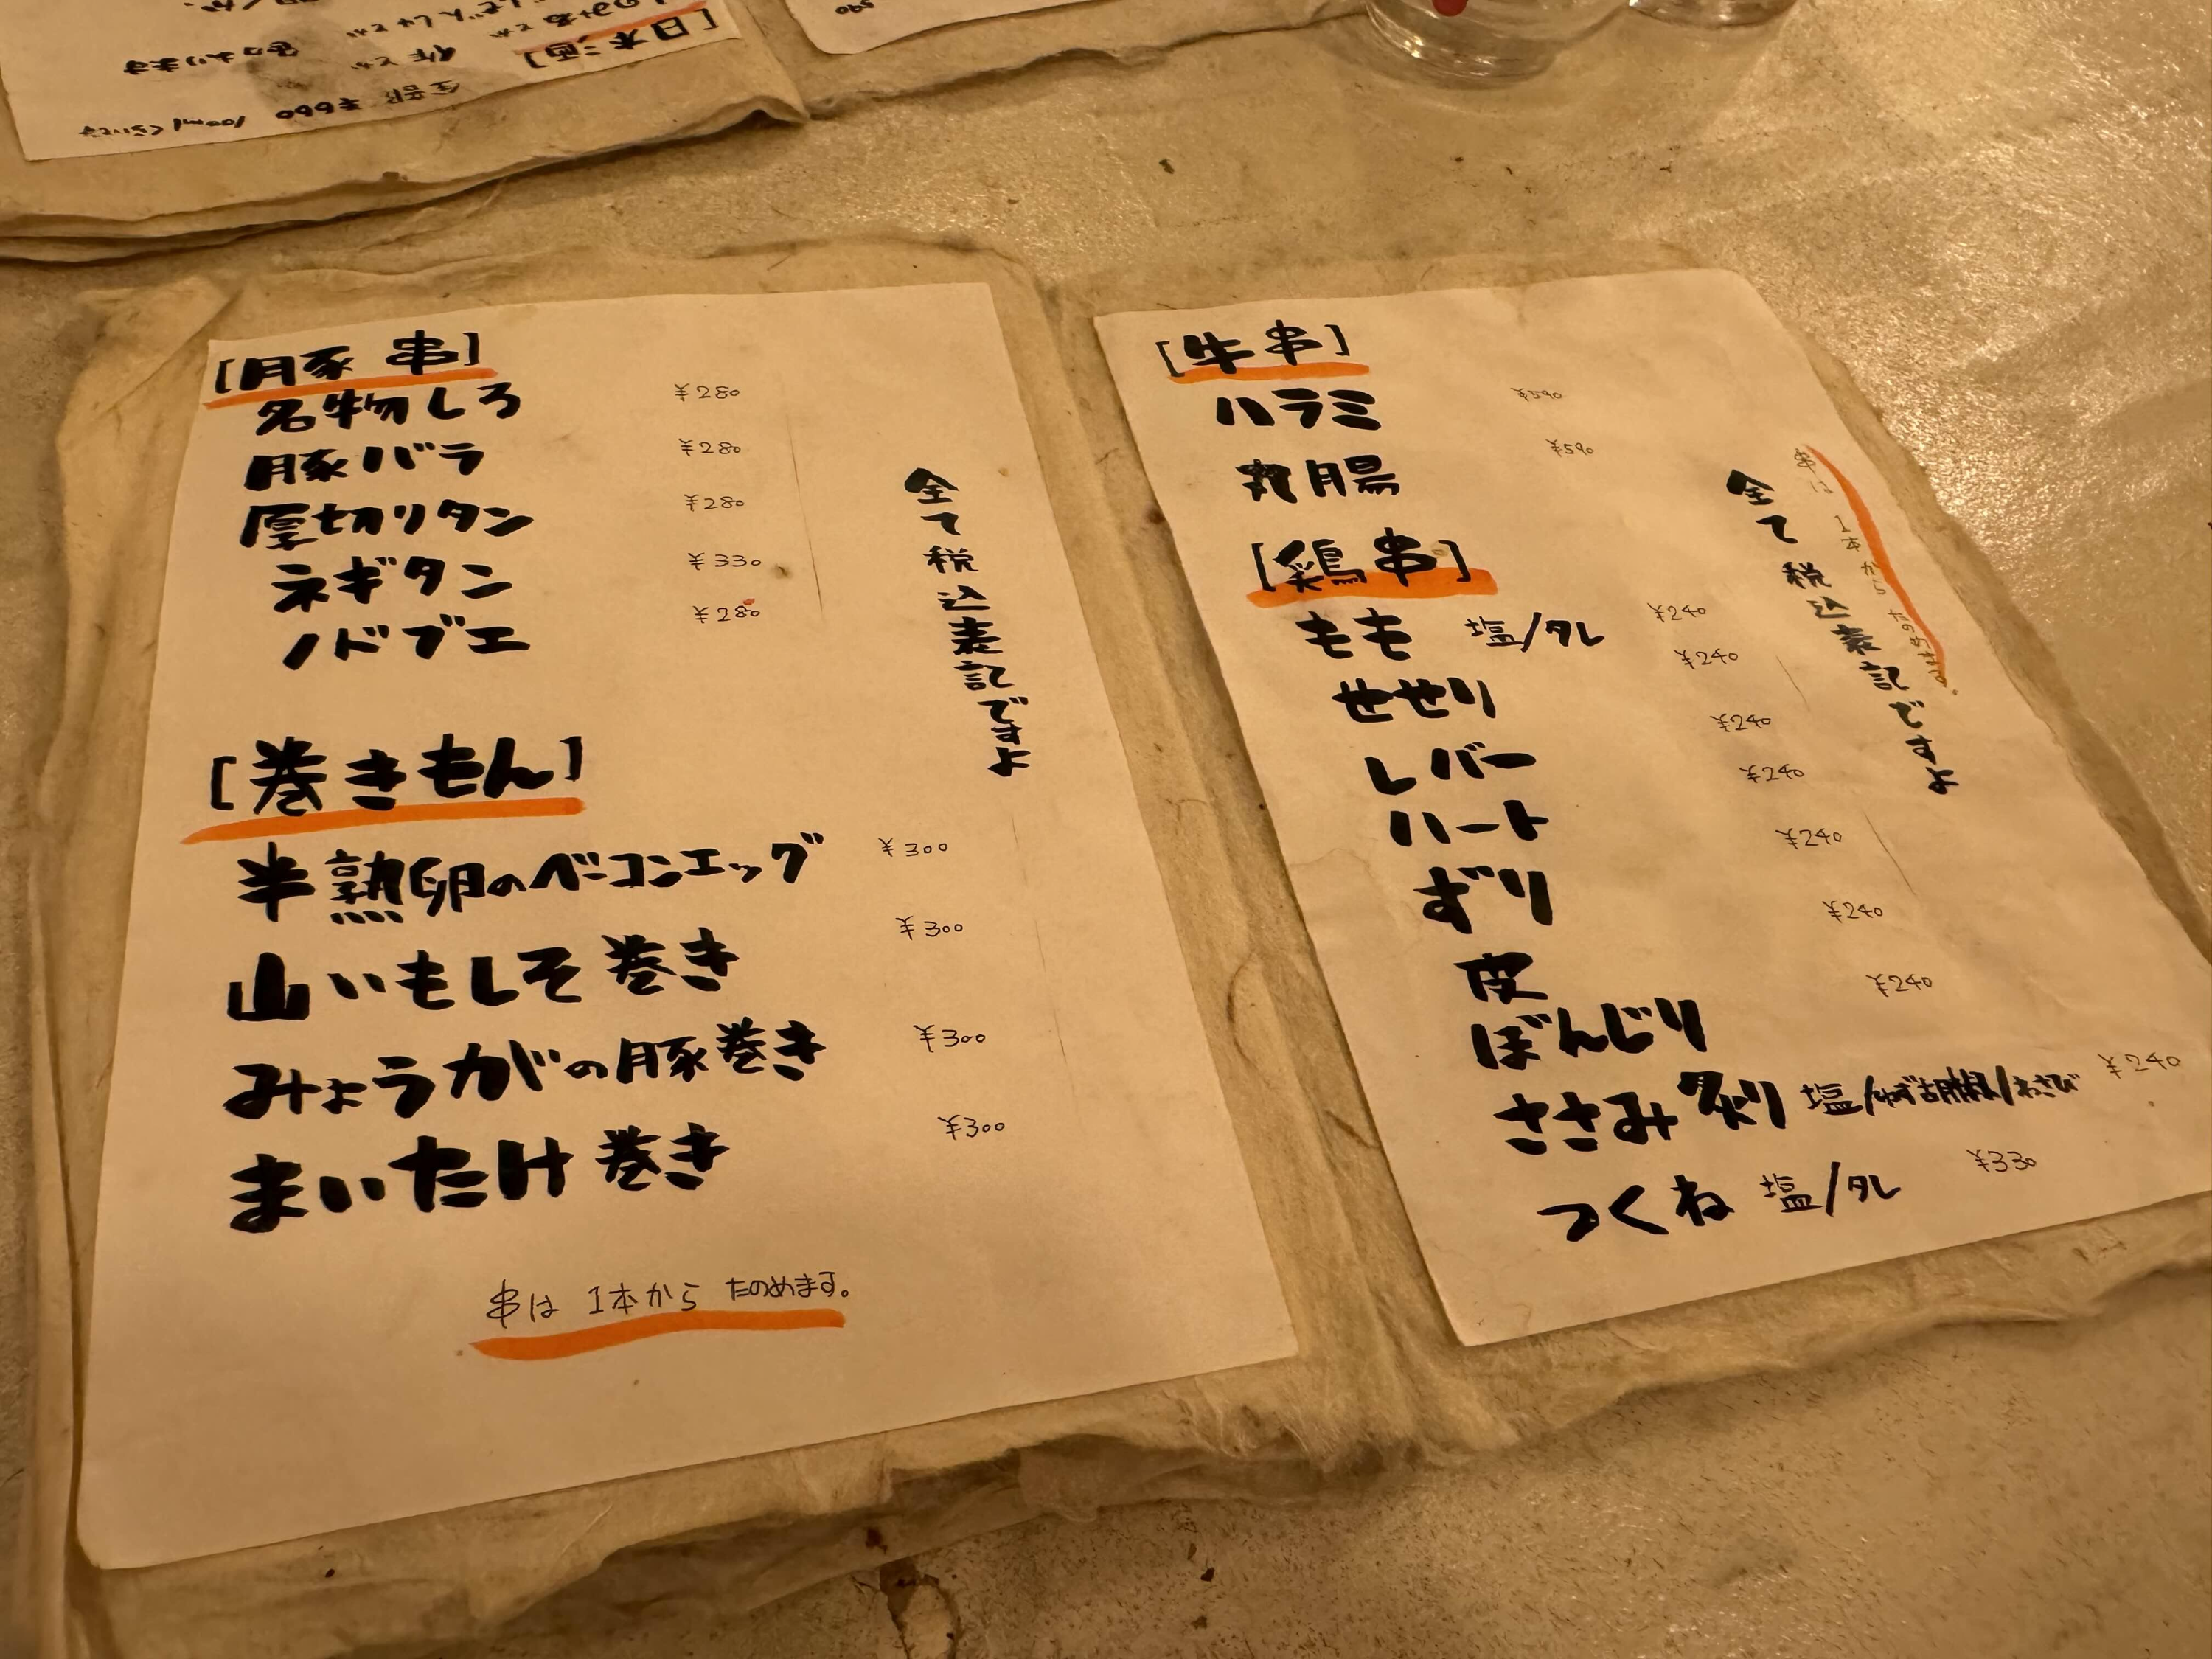 [日本酒]
全部 ¥600 100mlくらいです
590
[豚串]
名物しろ ¥280
豚バラ ¥280
厚切りタン ¥280
ネギタン ¥330
ノドブエ ¥280
全て税込表記ですよ
[巻きもん]
半熟卵のベーコンエッグ ¥300
山いもしそ巻き ¥300
みょうがの豚巻き ¥300
まいたけ巻き ¥300
串は 1本から たのめます。
[牛串]
ハラミ ¥590
丸腸 ¥590
[鶏串]
もも 塩/タレ ¥240
せせり ¥240
レバー ¥240
ハート ¥240
ずり ¥240
皮 ¥240
ぼんじり ¥240
ささみ炙り 塩/ゆず胡椒/わさび ¥240
つくね 塩/タレ ¥330
全て税込表記ですよ
串は 1本から たのめます。